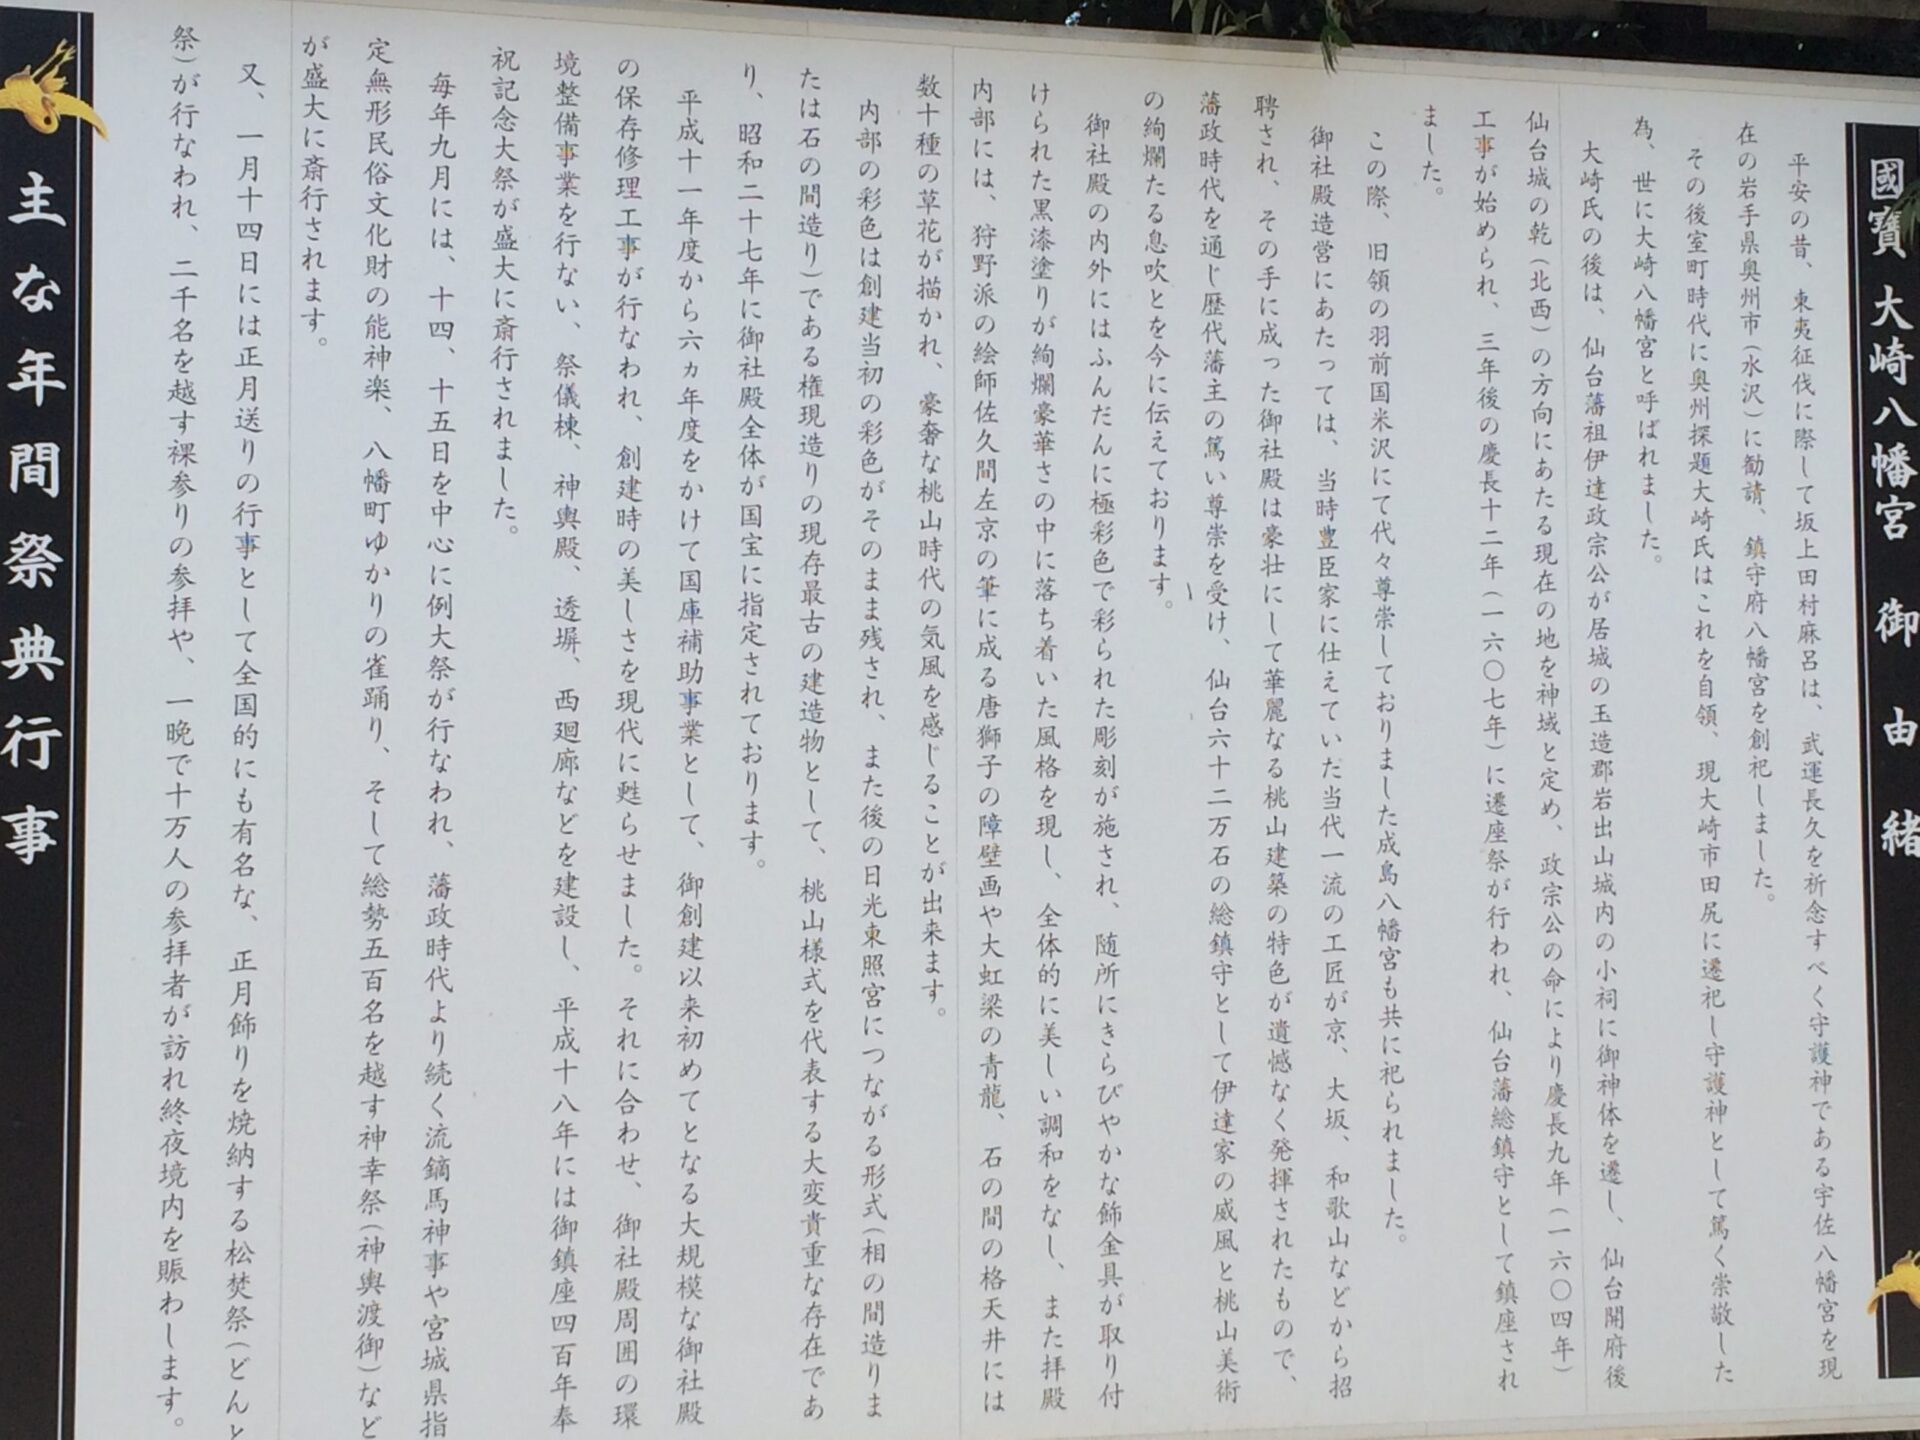 國寶 大崎八幡宮 御由緒
平安の昔、東夷征伐に際して坂上田村麻呂は、武運長久を祈念すべく守護神である宇佐八幡宮を現
在の岩手県奥州市(水沢)に勧請、鎮守府八幡宮を創祀しました。
その後室町時代に奥州探題大崎氏はこれを自領、現大崎市田尻に遷祀し守護神として篤く崇敬した
為、世に大崎八幡宮と呼ばれました。
大崎氏の後は、仙台藩祖伊達政宗公が居城の玉造郡岩出山城内の小祠に御神体を遷し、仙台開府後
仙台城の乾(北西)の方向にあたる現在の地を神域と定め、政宗公の命により慶長九年(一六〇四年)
工事が始められ、三年後の慶長十二年(一六〇七年)に遷座祭が行われ、仙台藩総鎮守として鎮座され
ました。
この際、旧領の羽前国米沢にて代々尊崇しておりました成島八幡宮も共に祀られました。
御社殿造営にあたっては、当時豊臣家に仕えていた当代一流の工匠が京、大坂、和歌山などから招
聘され、その手に成った御社殿は豪壮にして華麗なる桃山建築の特色が遺憾なく発揮されたもので、
藩政時代を通じ歴代藩主の篤い尊崇を受け、仙台六十二万石の総鎮守として伊達家の威風と桃山美術
の絢爛たる息吹とを今に伝えております。
御社殿の内外にはふんだんに極彩色で彩られた彫刻が施され、随所にきらびやかな飾金具が取り付
けられた黒漆塗りが絢爛豪華さの中に落ち着いた風格を現し、全体的に美しい調和をなし、また拝殿
内部には、狩野派の絵師佐久間左京の筆に成る唐獅子の障壁画や大虹梁の青龍、石の間の格天井には
数十種の草花が描かれ、豪奢な桃山時代の気風を感じることが出来ます。
内部の彩色は創建当初の彩色がそのまま残され、また後の日光東照宮につながる形式(相の間造りま
たは石の間造り)である権現造りの現存最古の建造物として、桃山様式を代表する大変貴重な存在であ
り、昭和二十七年に御社殿全体が国宝に指定されております。
平成十一年度から六ヵ年度をかけて国庫補助事業として、御創建以来初めてとなる大規模な御社殿
の保存修理工事が行なわれ、創建時の美しさを現代に甦らせました。それに合わせ、御社殿周囲の環
境整備事業を行ない、祭儀棟、神輿殿、透塀、西廻廊などを建設し、平成十八年には御鎮座四百年奉
祝記念大祭が盛大に斎行されました。
毎年九月には、十四、十五日を中心に例大祭が行なわれ、藩政時代より続く流鏑馬神事や宮城県指
定無形民俗文化財の能神楽、八幡町ゆかりの雀踊り、そして総勢五百名を越す神幸祭(神輿渡御)など
が盛大に斎行されます。
又、一月十四日には正月送りの行事として全国的にも有名な、正月飾りを焼納する松焚祭(どんと
祭)が行なわれ、二千名を越す裸参りの参拝や、一晩で十万人の参拝者が訪れ終夜境内を賑わします。
主な年間祭典行事